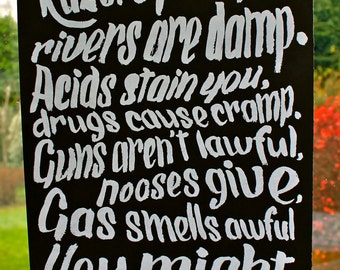 rivers are damp.
Acids stain you,
drugs cause cramp.
Guns aren't lawful,
nooses give,
Gas smells awful
You might